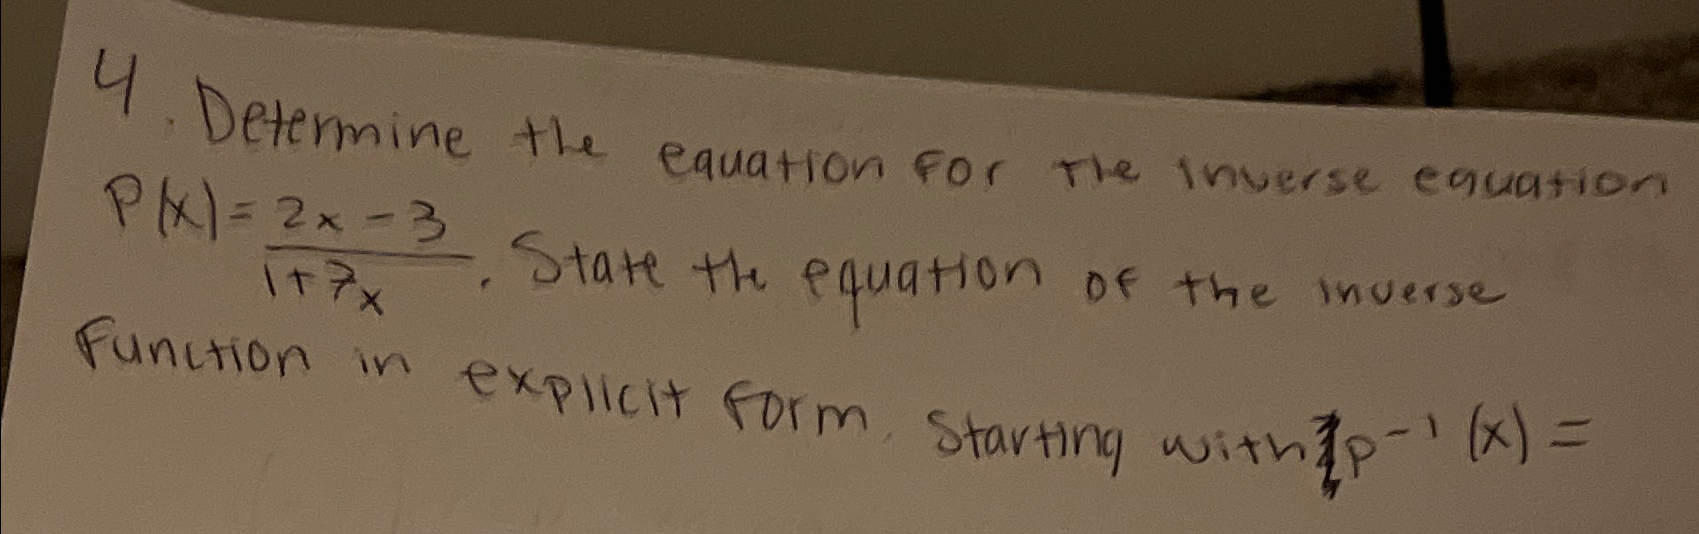 4. Determine the equation for the inverse equation
P(x) = 2x - 3 / 1 + 7x . State the equation of the inverse
Function in explicit form. Starting with p⁻¹(x) =